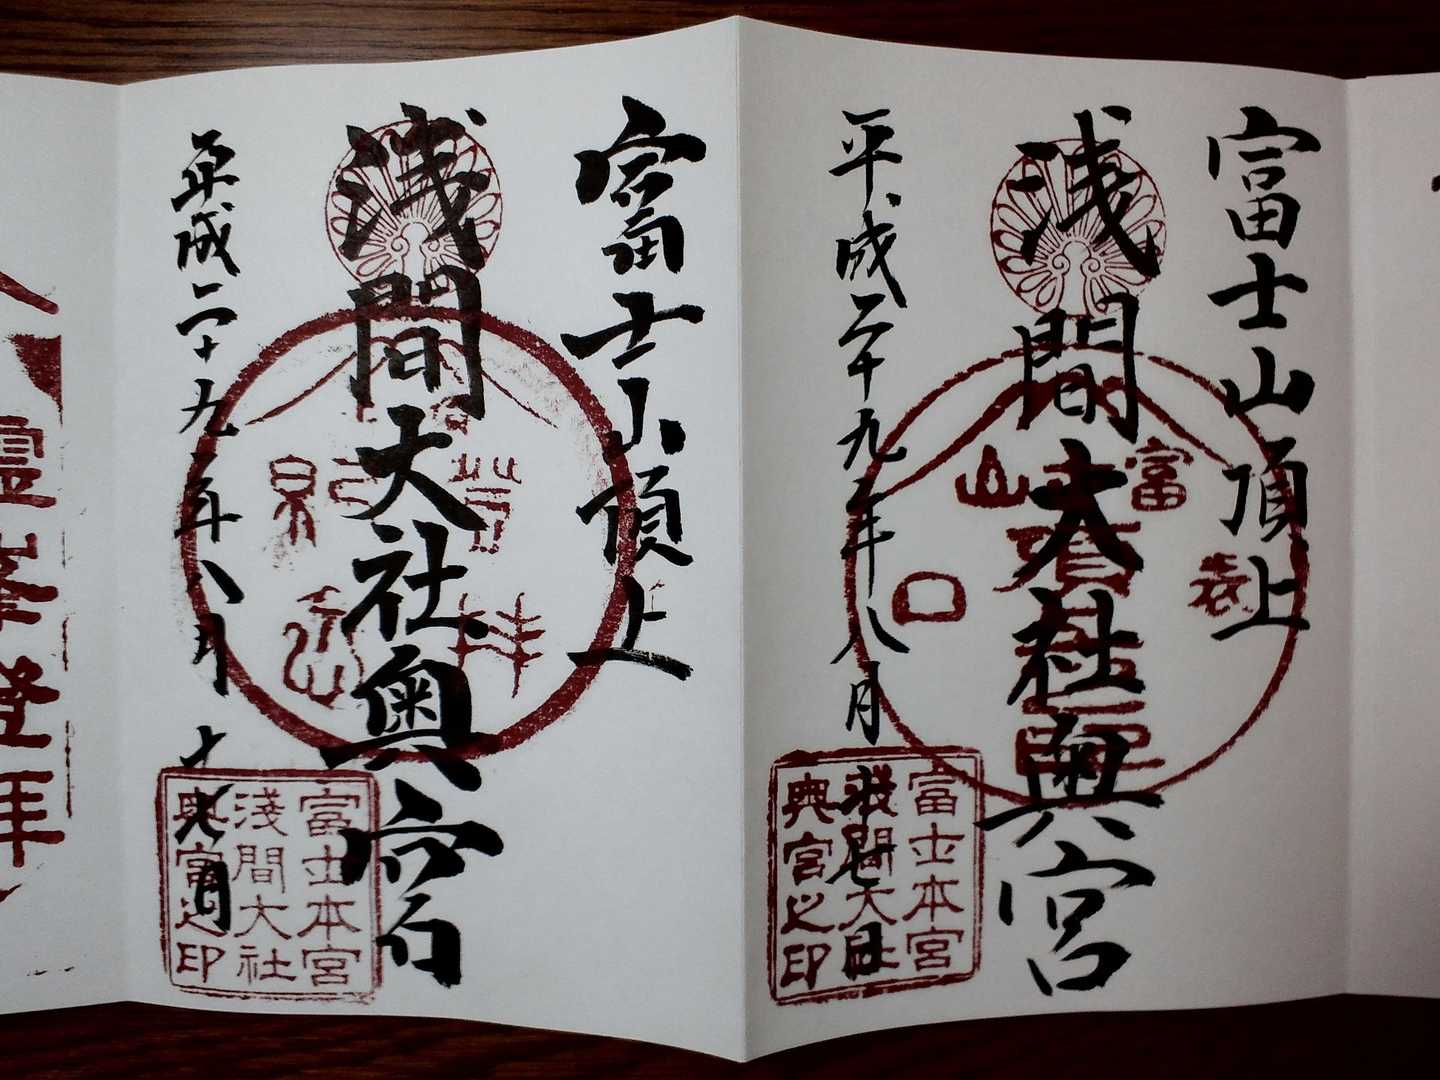 富士山頂上
浅間大社奥宮
平成二十九年八月
富士本宮
淺間大社
奥宮之印
富山
表口
富士山頂上
浅間大社奥宮
平成二十九年八月十八日
富士本宮
淺間大社
奥宮之印
霊峯登拝